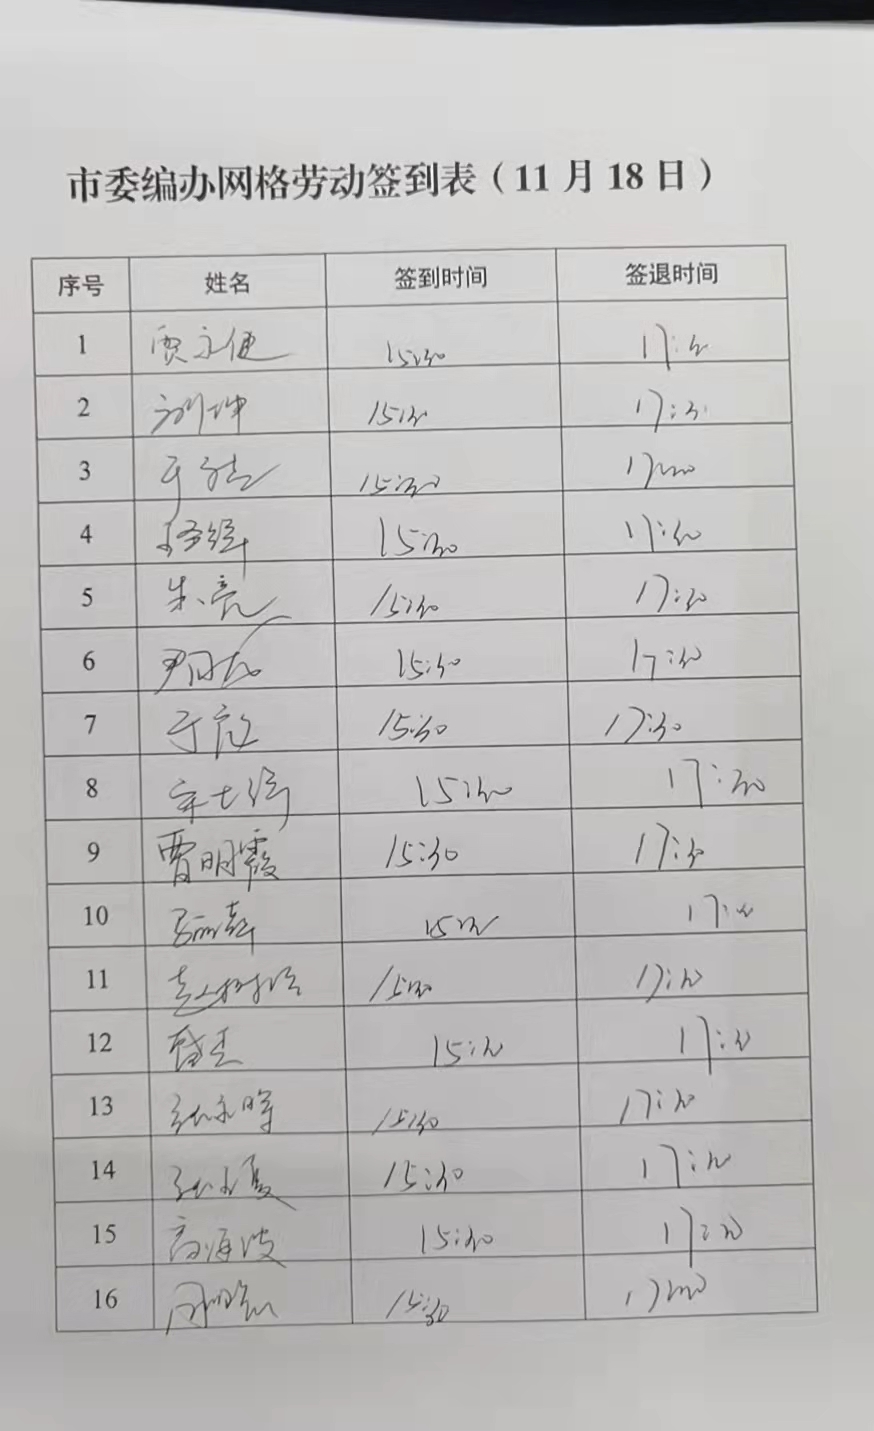 市委编办网格劳动签到表（11月18日）
序号 姓名 签到时间 签退时间
1 贾永健 15:30 17:30
2 刘坤 15:30 17:30
3 15:30 17:30
4 15:30 17:30
5 朱亮 15:30 17:30
6 15:30 17:30
7 15:30 17:30
8 15:30 17:30
9 曹明霞 15:30 17:30
10 15:30 17:30
11 15:30 17:30
12 15:30 17:30
13 张永晖 15:30 17:30
14 15:30 17:30
15 高海波 15:30 17:30
16 15:30 17:30